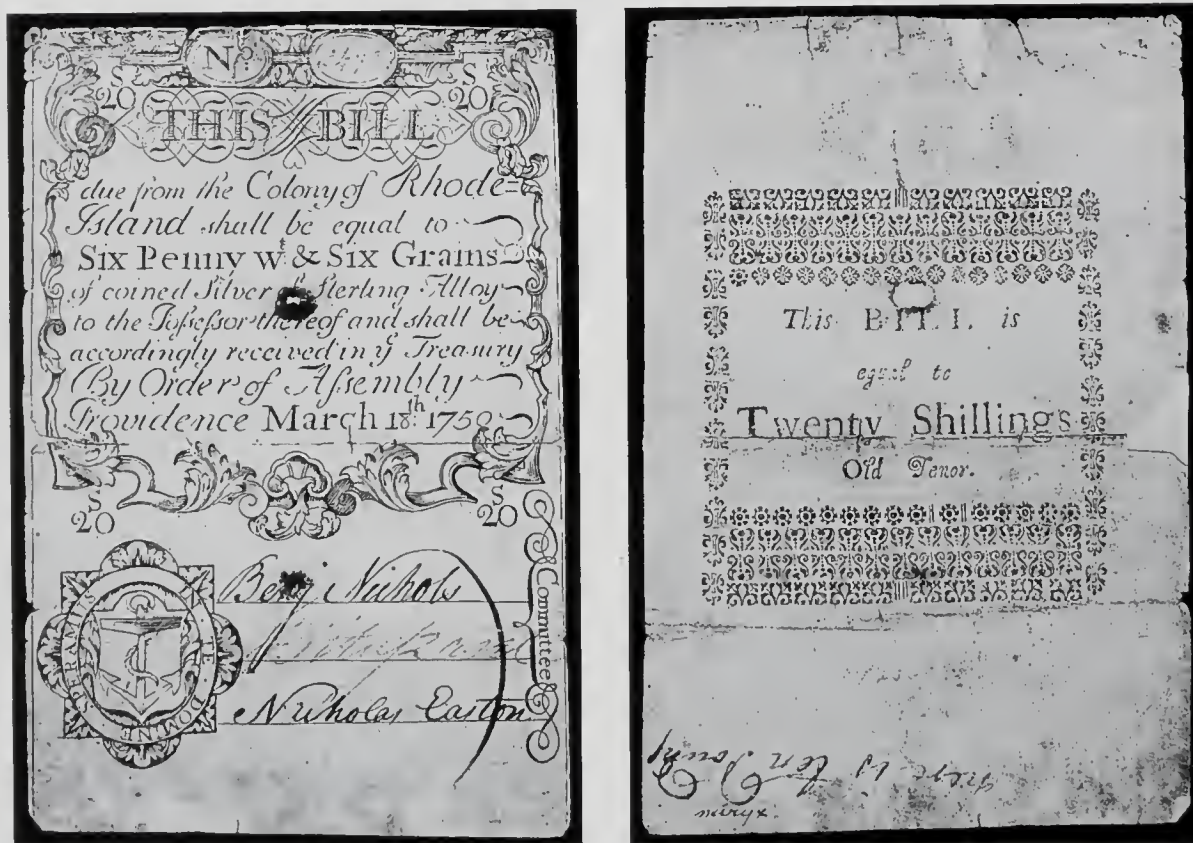 Nº:
S
20
S
20
THIS BILL
due from the Colony of Rhode=
Island shall be equal to
Six Penny wt. & Six Grains
of coined Silver Sterling Alloy
to the Possessor thereof and shall be
accordingly received in ye Treasury
By Order of Assembly
Providence March 18th. 1750
S
20
S
20
IN TE DOMINE SPERAMUS
Benj Nichols
Nicholas Easton
Committee
This BILL is
equal to
Twenty Shillings
Old Tenor.